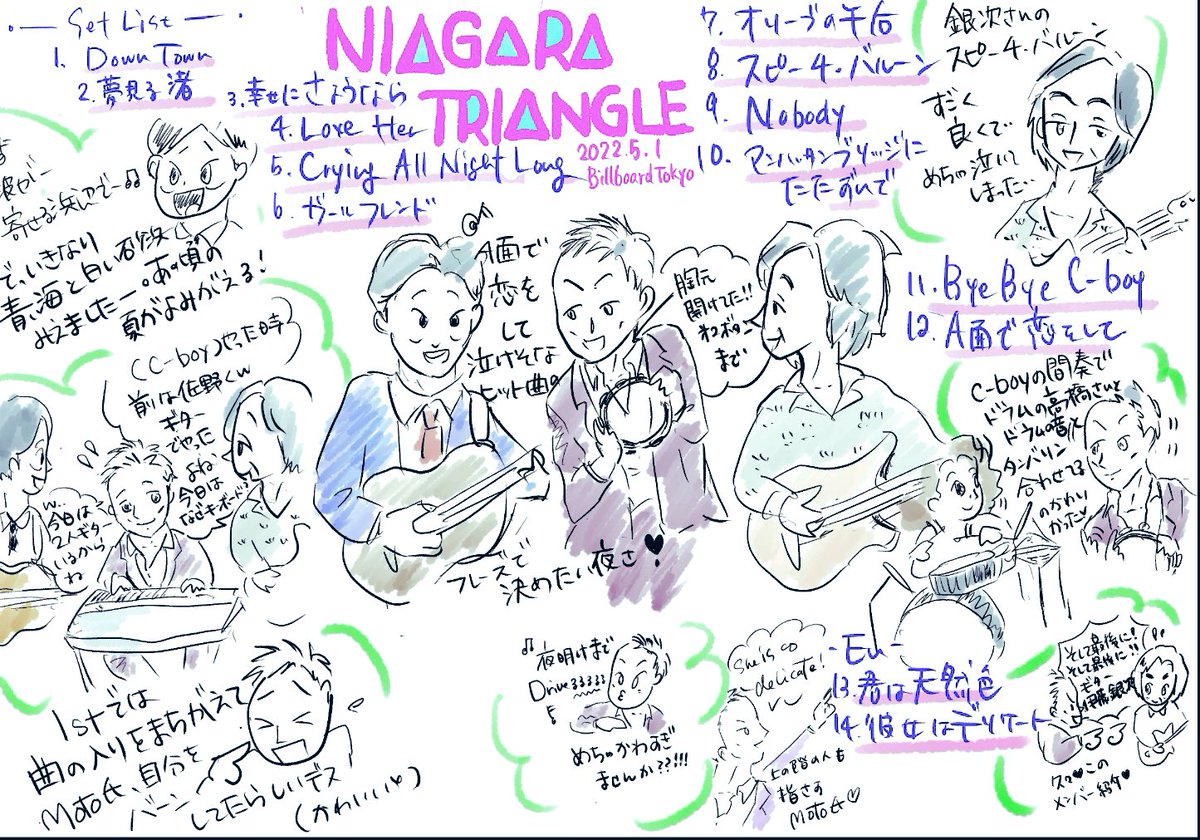 Set List
1. Down Town
2. 夢見る渚
3. 幸せにさようなら
4. Love Her
5. Crying All Night Long
6. ガールフレンド
NIAGARA
TRIANGLE
2022.5.1
Billboard Tokyo
7. オリーブの午后
8. スピーチ・バルーン
9. Nobody
10. マンハッタンブリッジに
たたずんで
11. Bye Bye C-boy
12. A面で恋をして
-En-
13. 君は天然色
14. 彼女はデリケート
銀次さんの
スピーチ・バルーン
すごく
良くて
めちゃ泣いて
しまった…
寄せる浜辺でー♫
で、いきなり
青い海と白い砂浜
みえましたー。あの頃の
夏がよみがえる!
A面で
恋を
して
泣けそな
ヒット曲の
フレーズで
決めたい夜さ♥
胸元
開けてた!!
ボタン
まで
CC-boyやった時
前は佐野くんw
ギター
でやった
よね
今日は
なぜキーボード?
今日は
2人ギター
いるから
ね
C-boyの間奏で
ドラムの高橋さんと
ドラムの音に
タンバリン
合わせてる
のかわい
かった♥
1stでは
曲の入りをまちがえて
Moto氏、自分を
バーン
してたらしいデス
(かわいい♥)
♫夜明けまで
Driveるるるるる
めちゃかわすぎ
ませんか??!!!
She is so
delicate!
上の階の人も
指さす
Moto氏♡
そして最後に!
そして最後に!!
ギター
伊藤銀次
久々♥この
メンバー紹介♥